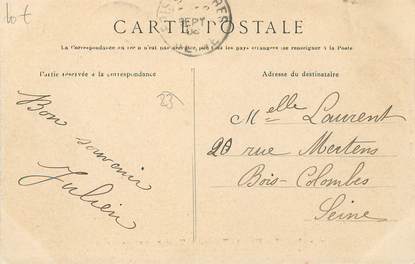 lot
CARTE POSTALE
La Correspondance au recto n'est pas acceptée par tous les pays étrangers (se renseigner à la Poste)
Partie réservée à la correspondance
Adresse du destinataire
23
Bon
souvenir
Julien
Melle Laurent
20 rue Mertens
Bois-Colombes
Seine
SEPT